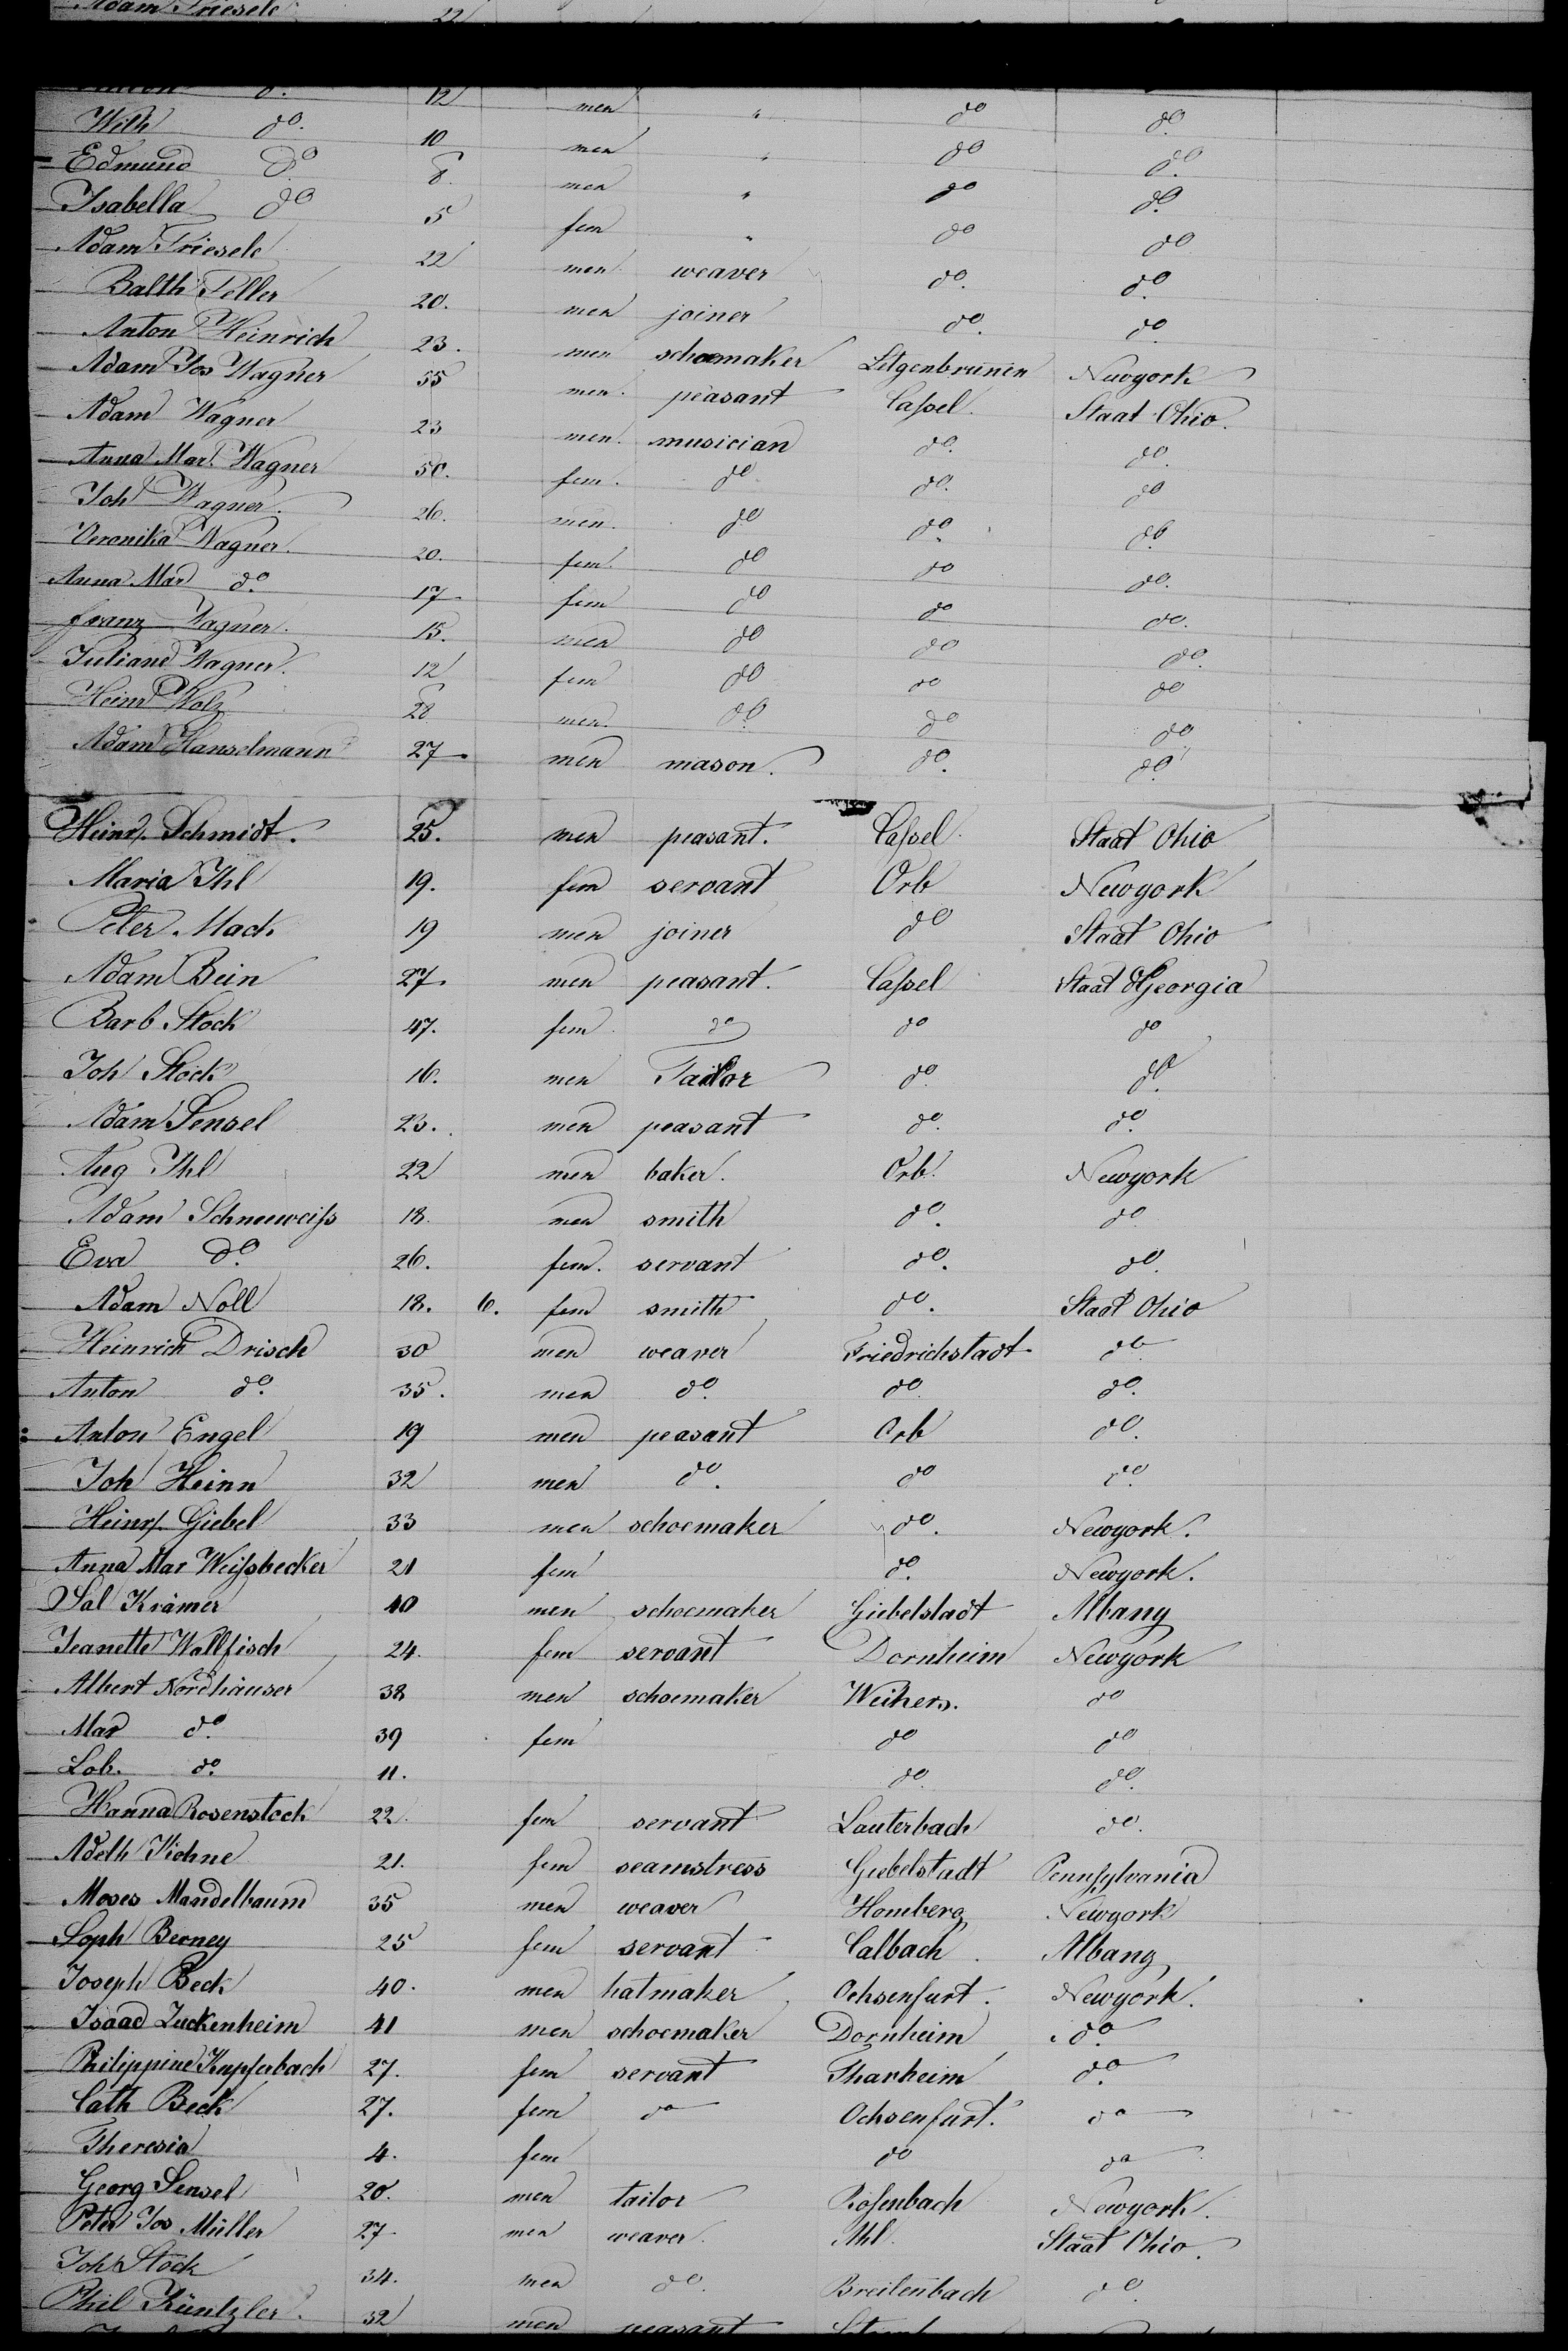 Adam Friesele 22
12 men " do do
Wilh do. 10 men " do do.
Edmund Do 8. men " do do.
Isabella do 5 fem " do do
Adam Friesele 22 men weaver do. do.
Balth Feller 20. men joiner do. do
Anton Heinrich 23. men schoemaker Letgenbrunnen Newyork
Adam Jos Wagner 55 men. peasant Caſsel. Staat Ohio.
Adam Wagner 23 men. musician do. do.
Anna Mar. Wagner 50. fem. do do. do
Joh Wagner. 26. men. do do. do.
Veronika Wagner. 20. fem. do do do.
Anna Mar do. 17 fem do do do.
Franz Wagner. 15. men do do do.
Juliane Wagner. 12 fem do do do
Heinr Wolz 28 men. do. do do
Adam Hanselmann 27 men mason. do. do.
Heinr. Schmidt. 25. men peasant. Caſsel. Staat Ohio
Maria Ihl 19. fem servant Orb Newyork
Peter Mack 19 men joiner do Staat Ohio
Adam Bein 27. men peasant. Caſsel Staat Georgia
Barb Stock 47. fem. do do do
Joh Stock 16. men Tailor do. do.
Adam Sensel 23. men peasant do. do.
Aug Ihl 22 men baker. Orb. Newyork
Adam Schneeweiſs 18. men smith do. do
Eva Do. 26. fem. servant do. do.
Adam Noll 18. 6. fem smith do. Staat Ohio
Heinrich Drisch 30 men weaver Friedrichstadt do.
Anton do. 35. men do. do. do.
Anton Engel 19 men peasant Orb do.
Joh Heinn 32 men do. do do.
Heinr. Giebel 33 men schoemaker do. Newyork.
Anna Mar Weiſsbecker 21 fem do. Newyork.
Sal Krämer 40 men schoemaker Giebelstadt Albany
Jeanette Wallfisch 24. fem servant Dornheim Newyork
Albert Nordhäuser 38 men schoemaker Weihers. do
Mar do. 39 fem do do
Lob. do. 11. do. do.
Hanna Rosenstock 22. fem servant Lauterbach do.
Adelh Kohne 21. fem seamstress Giebelstadt Pennſylvania
Moses Mandelbaum 35 men weaver Homberg Newyork
Soph Berney 25 fem servant Calbach. Albany
Joseph Beck 40. men hatmaker Ochsenfurt. Newyork.
Isaac Zuckenheim 41 men schoemaker Dornheim do.
Philippine Kupferbach 27. fem servant Tharheim do.
Cath Beck 27. fem do Ochsenfurt. do
Theresia 4. fem do do
Georg Sensel 20. men tailor Roſenbach Newyork.
Peter Jos Müller 27 men weaver Ahl. Staat Ohio.
Joh Stock 34. men do. Breitenbach do.
Phil Küntzler. 32 men peasant